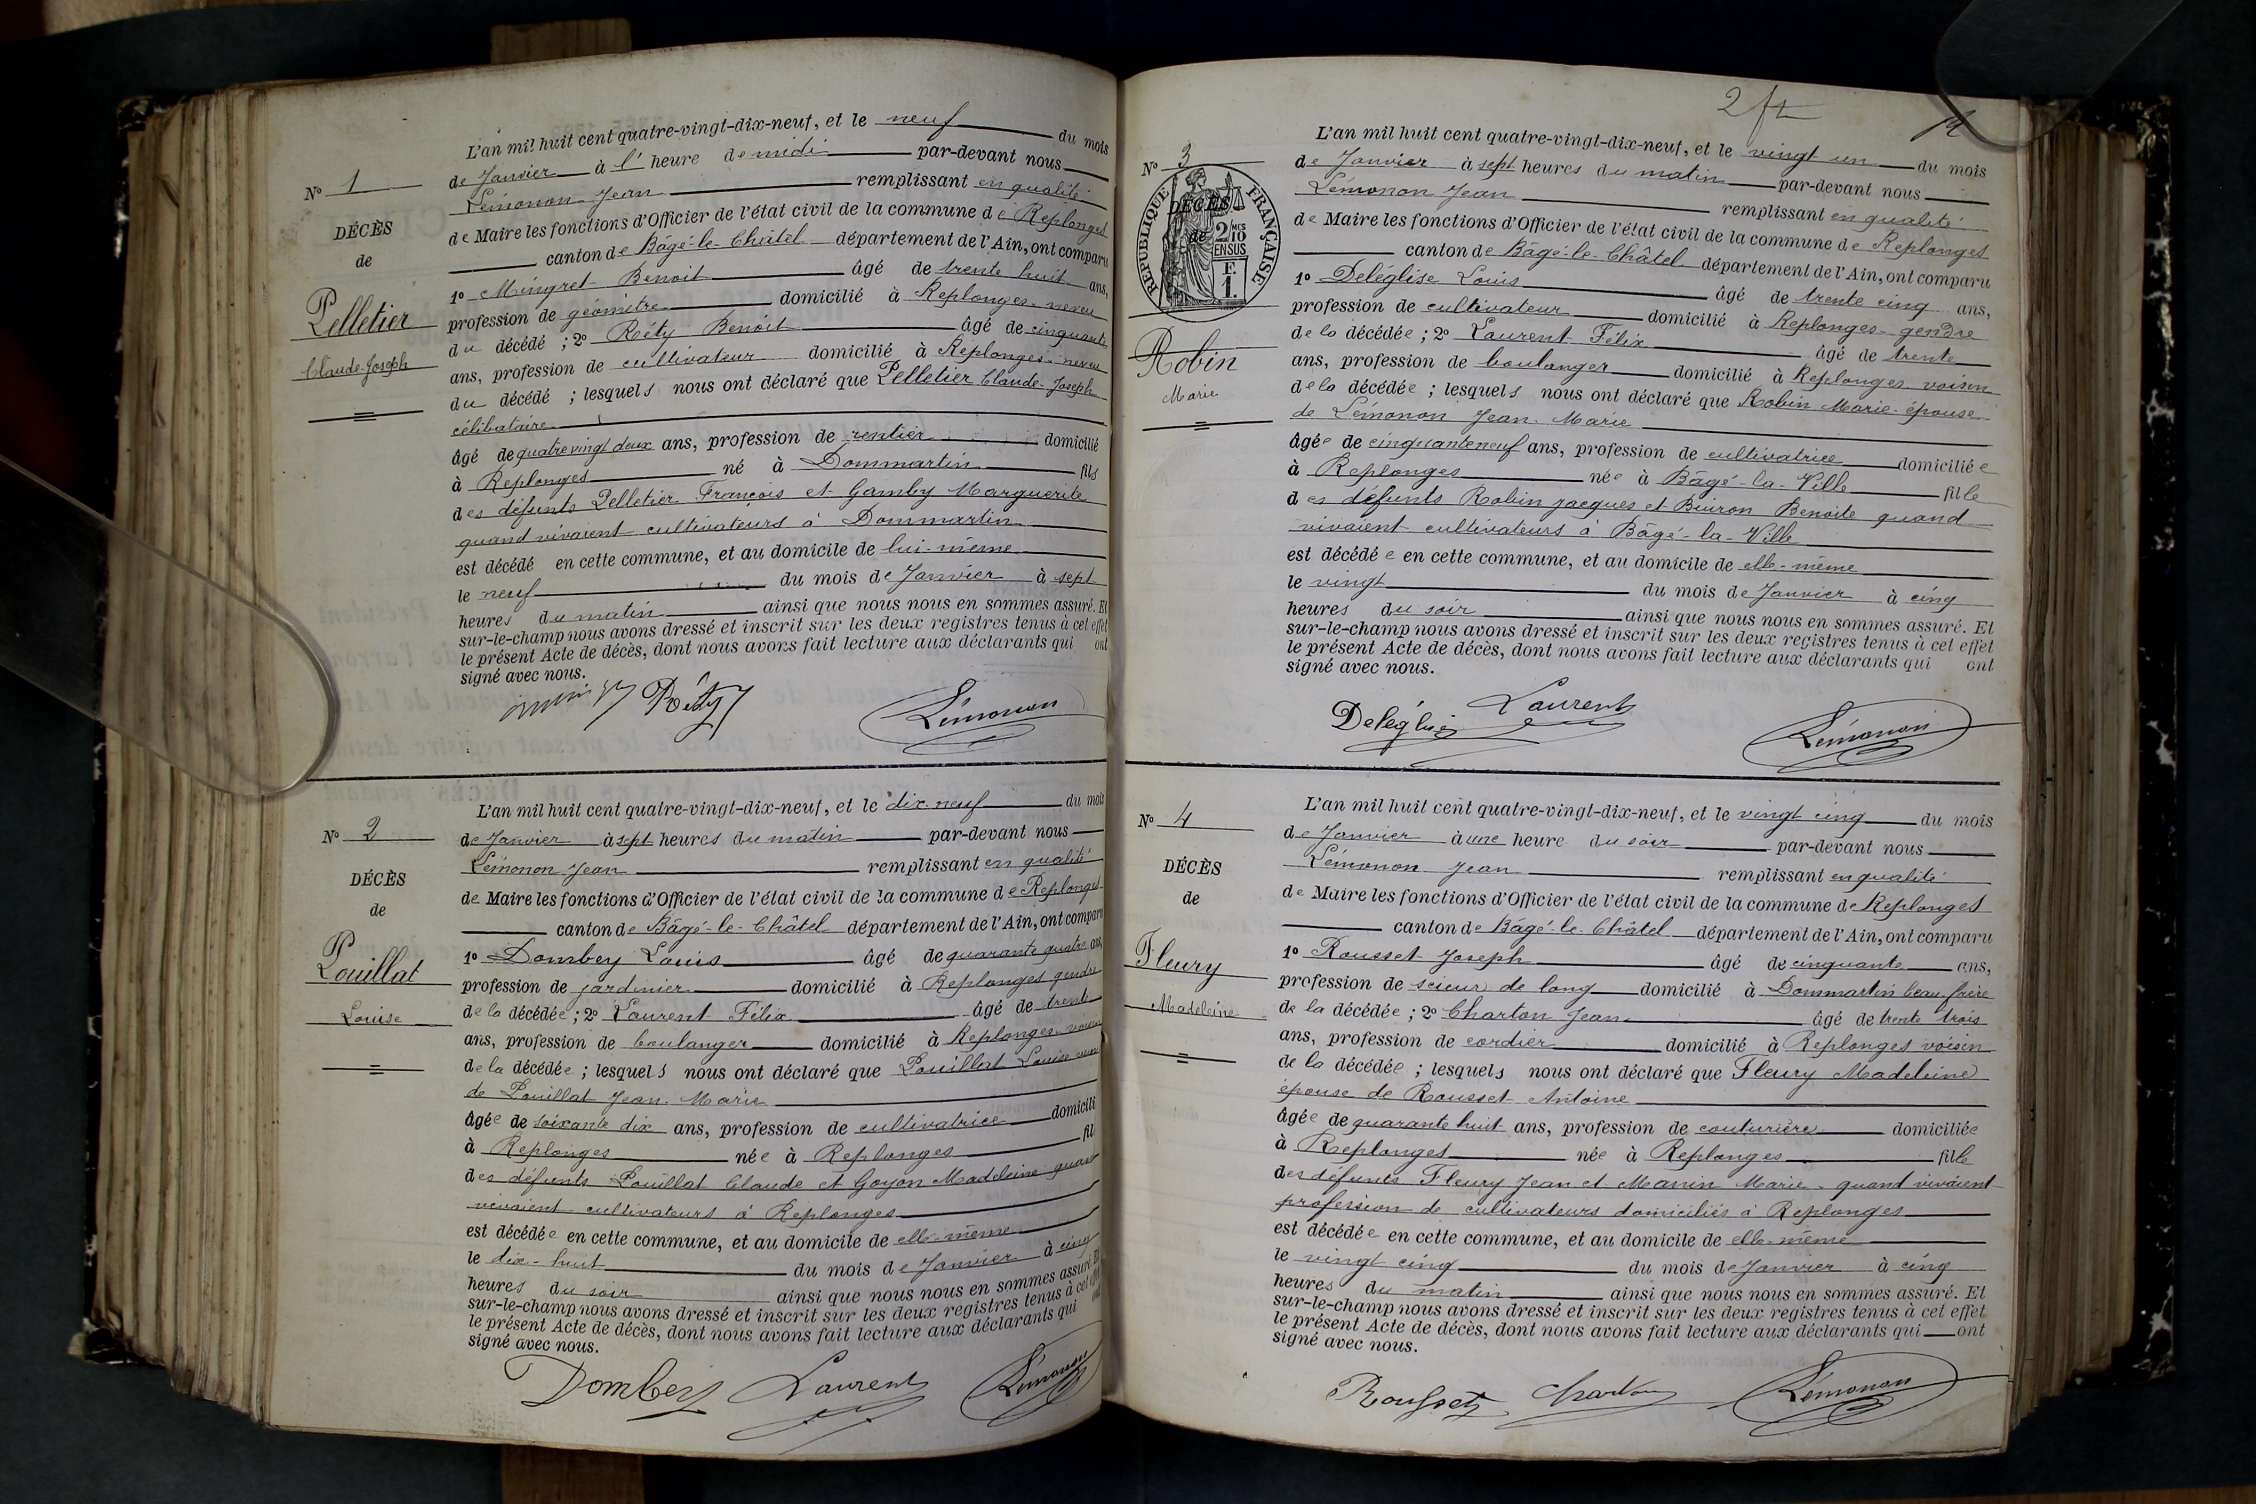 L'an mil huit cent quatre-vingt-dix-neuf, et le neuf du mois
de Janvier à l' heure de midi par-devant nous
Lémonon Jean remplissant en qualité
de Maire les fonctions d'Officier de l'état civil de la commune de Replonges
canton de Bâgé-le-Châtel département de l'Ain, ont comparu
1º Mingret Benoit âgé de trente huit ans,
profession de géomètre domicilié à Replonges neveu
du décédé ; 2º Réty Benoit âgé de cinquante
ans, profession de cultivateur domicilié à Replonges neveu
du décédé ; lesquels nous ont déclaré que Pelletier Claude-Joseph
célibataire
âgé de quatre vingt deux ans, profession de rentier domicilié
à Replonges né à Dommartin fils
des défunts Pelletier François et Gamby Marguerite
quand vivaient cultivateurs à Dommartin
est décédé en cette commune, et au domicile de lui-même
le neuf du mois de Janvier à sept
heures du matin ainsi que nous nous en sommes assuré. Et
sur-le-champ nous avons dressé et inscrit sur les deux registres tenus à cet effet
le présent Acte de décès, dont nous avons fait lecture aux déclarants qui ont
signé avec nous.
Nº 1
DÉCÈS
de
Pelletier
Claude-Joseph
Réty Lémonon
L'an mil huit cent quatre-vingt-dix-neuf, et le dix neuf du mois
de Janvier à sept heures du matin par-devant nous
Lémonon Jean remplissant en qualité
de Maire les fonctions d'Officier de l'état civil de la commune de Replonges
canton de Bâgé-le-Châtel département de l'Ain, ont comparu
1º Dombey Louis âgé de quarante quatre ans,
profession de jardinier domicilié à Replonges gendre
de la décédée ; 2º Laurent Félix âgé de trente
ans, profession de boulanger domicilié à Replonges voisin
de la décédée ; lesquels nous ont déclaré que Pouillat Louise veuve
de Pouillat Jean-Marie
âgée de soixante dix ans, profession de cultivatrice domicili
à Replonges née à Replonges fil
des défunts Pouillat Claude et Goyon Madeleine quand
vivaient cultivateurs à Replonges
est décédée en cette commune, et au domicile de elle-même
le dix-huit du mois de Janvier à cinq
heures du soir ainsi que nous nous en sommes assuré. Et
sur-le-champ nous avons dressé et inscrit sur les deux registres tenus à cet effet
le présent Acte de décès, dont nous avons fait lecture aux déclarants qui ont
signé avec nous.
Nº 2
DÉCÈS
de
Pouillat
Louise
Dombey Laurent Lémonon
2 ft
L'an mil huit cent quatre-vingt-dix-neuf, et le vingt un du mois
de Janvier à sept heures du matin par-devant nous
Lémonon Jean remplissant en qualité
de Maire les fonctions d'Officier de l'état civil de la commune de Replonges
canton de Bâgé-le-Châtel département de l'Ain, ont comparu
1º Deleglise Louis âgé de trente cinq ans,
profession de cultivateur domicilié à Replonges gendre
de la décédée ; 2º Laurent Félix âgé de trente
ans, profession de boulanger domicilié à Replonges voisin
de la décédée ; lesquels nous ont déclaré que Robin Marie épouse
de Lémonon Jean-Marie
âgée de cinquante neuf ans, profession de cultivatrice domiciliée
à Replonges née à Bâgé-la-Ville fille
des défunts Robin Jacques et Buiron Benoite quand
vivaient cultivateurs à Bâgé-la-Ville
est décédée en cette commune, et au domicile de elle-même
le vingt du mois de Janvier à cinq
heures du soir ainsi que nous nous en sommes assuré. Et
sur-le-champ nous avons dressé et inscrit sur les deux registres tenus à cet effet
le présent Acte de décès, dont nous avons fait lecture aux déclarants qui ont
signé avec nous.
Nº 3
RÉPUBLIQUE FRANÇAISE
DÉCÈS
de
2/10 MES
EN SUS
F.
1.
Robin
Marie
Deléglise Laurent Lémonon
L'an mil huit cent quatre-vingt-dix-neuf, et le vingt cinq du mois
de Janvier à une heure du soir par-devant nous
Lémonon Jean remplissant en qualité
de Maire les fonctions d'Officier de l'état civil de la commune de Replonges
canton de Bâgé-le-Châtel département de l'Ain, ont comparu
1º Rousset Joseph âgé de cinquante ans,
profession de scieur de long domicilié à Dommartin beau frère
de la décédée ; 2º Charton Jean âgé de trente trois
ans, profession de cordier domicilié à Replonges voisin
de la décédée ; lesquels nous ont déclaré que Fleury Madeleine
épouse de Rousset Antoine
âgée de quarante huit ans, profession de couturière domiciliée
à Replonges née à Replonges fille
des défunts Fleury Jean et Manin Marie quand vivaient
profession de cultivateurs domiciliés à Replonges
est décédée en cette commune, et au domicile de elle-même
le vingt cinq du mois de Janvier à cinq
heures du matin ainsi que nous nous en sommes assuré. Et
sur-le-champ nous avons dressé et inscrit sur les deux registres tenus à cet effet
le présent Acte de décès, dont nous avons fait lecture aux déclarants qui ont
signé avec nous.
Nº 4
DÉCÈS
de
Fleury
Madeleine
Rousset Charton Lémonon